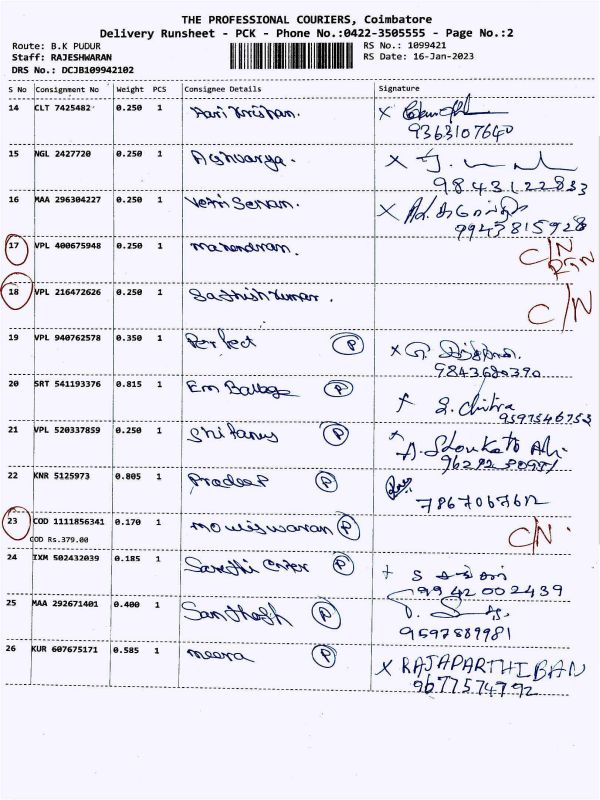 THE PROFESSIONAL COURIERS, Coimbatore
Delivery Runsheet - PCK - Phone No.:0422-3505555 - Page No.:2
Route: B.K PUDUR
RS No.: 1099421
Staff: RAJESHWARAN
RS Date: 16-Jan-2023
DRS No.: DCJB109942102
S No Consignment No Weight PCS Consignee Details Signature
14 CLT 7425482 0.250 1 Hari Krishan.
9363107640
15 NGL 2427720 0.250 1 Aishwarya.
9843122833
16 MAA 296304227 0.250 1
9945815928
17 VPL 400675948 0.250 1 Mahendiran. C/N
18 VPL 216472626 0.250 1 Sathishkumar. C/N
19 VPL 940762578 0.350 1 Perfect P
9843680390
20 SRT 541193376 0.815 1 Em P S. Chitra
9597546753
21 VPL 520337859 0.250 1 P
22 KNR 5125973 0.805 1 Pradeep P
7867067612
23 COD 1111856341 0.170 1 Mowiswaran P C/N.
COD Rs.379.00
24 IXM 502432039 0.185 1 P
9942002439
25 MAA 292671401 0.400 1 Santhosh P
9597889981
26 KUR 607675171 0.585 1 Meera P X RAJAPARTHIBAN
9677574792